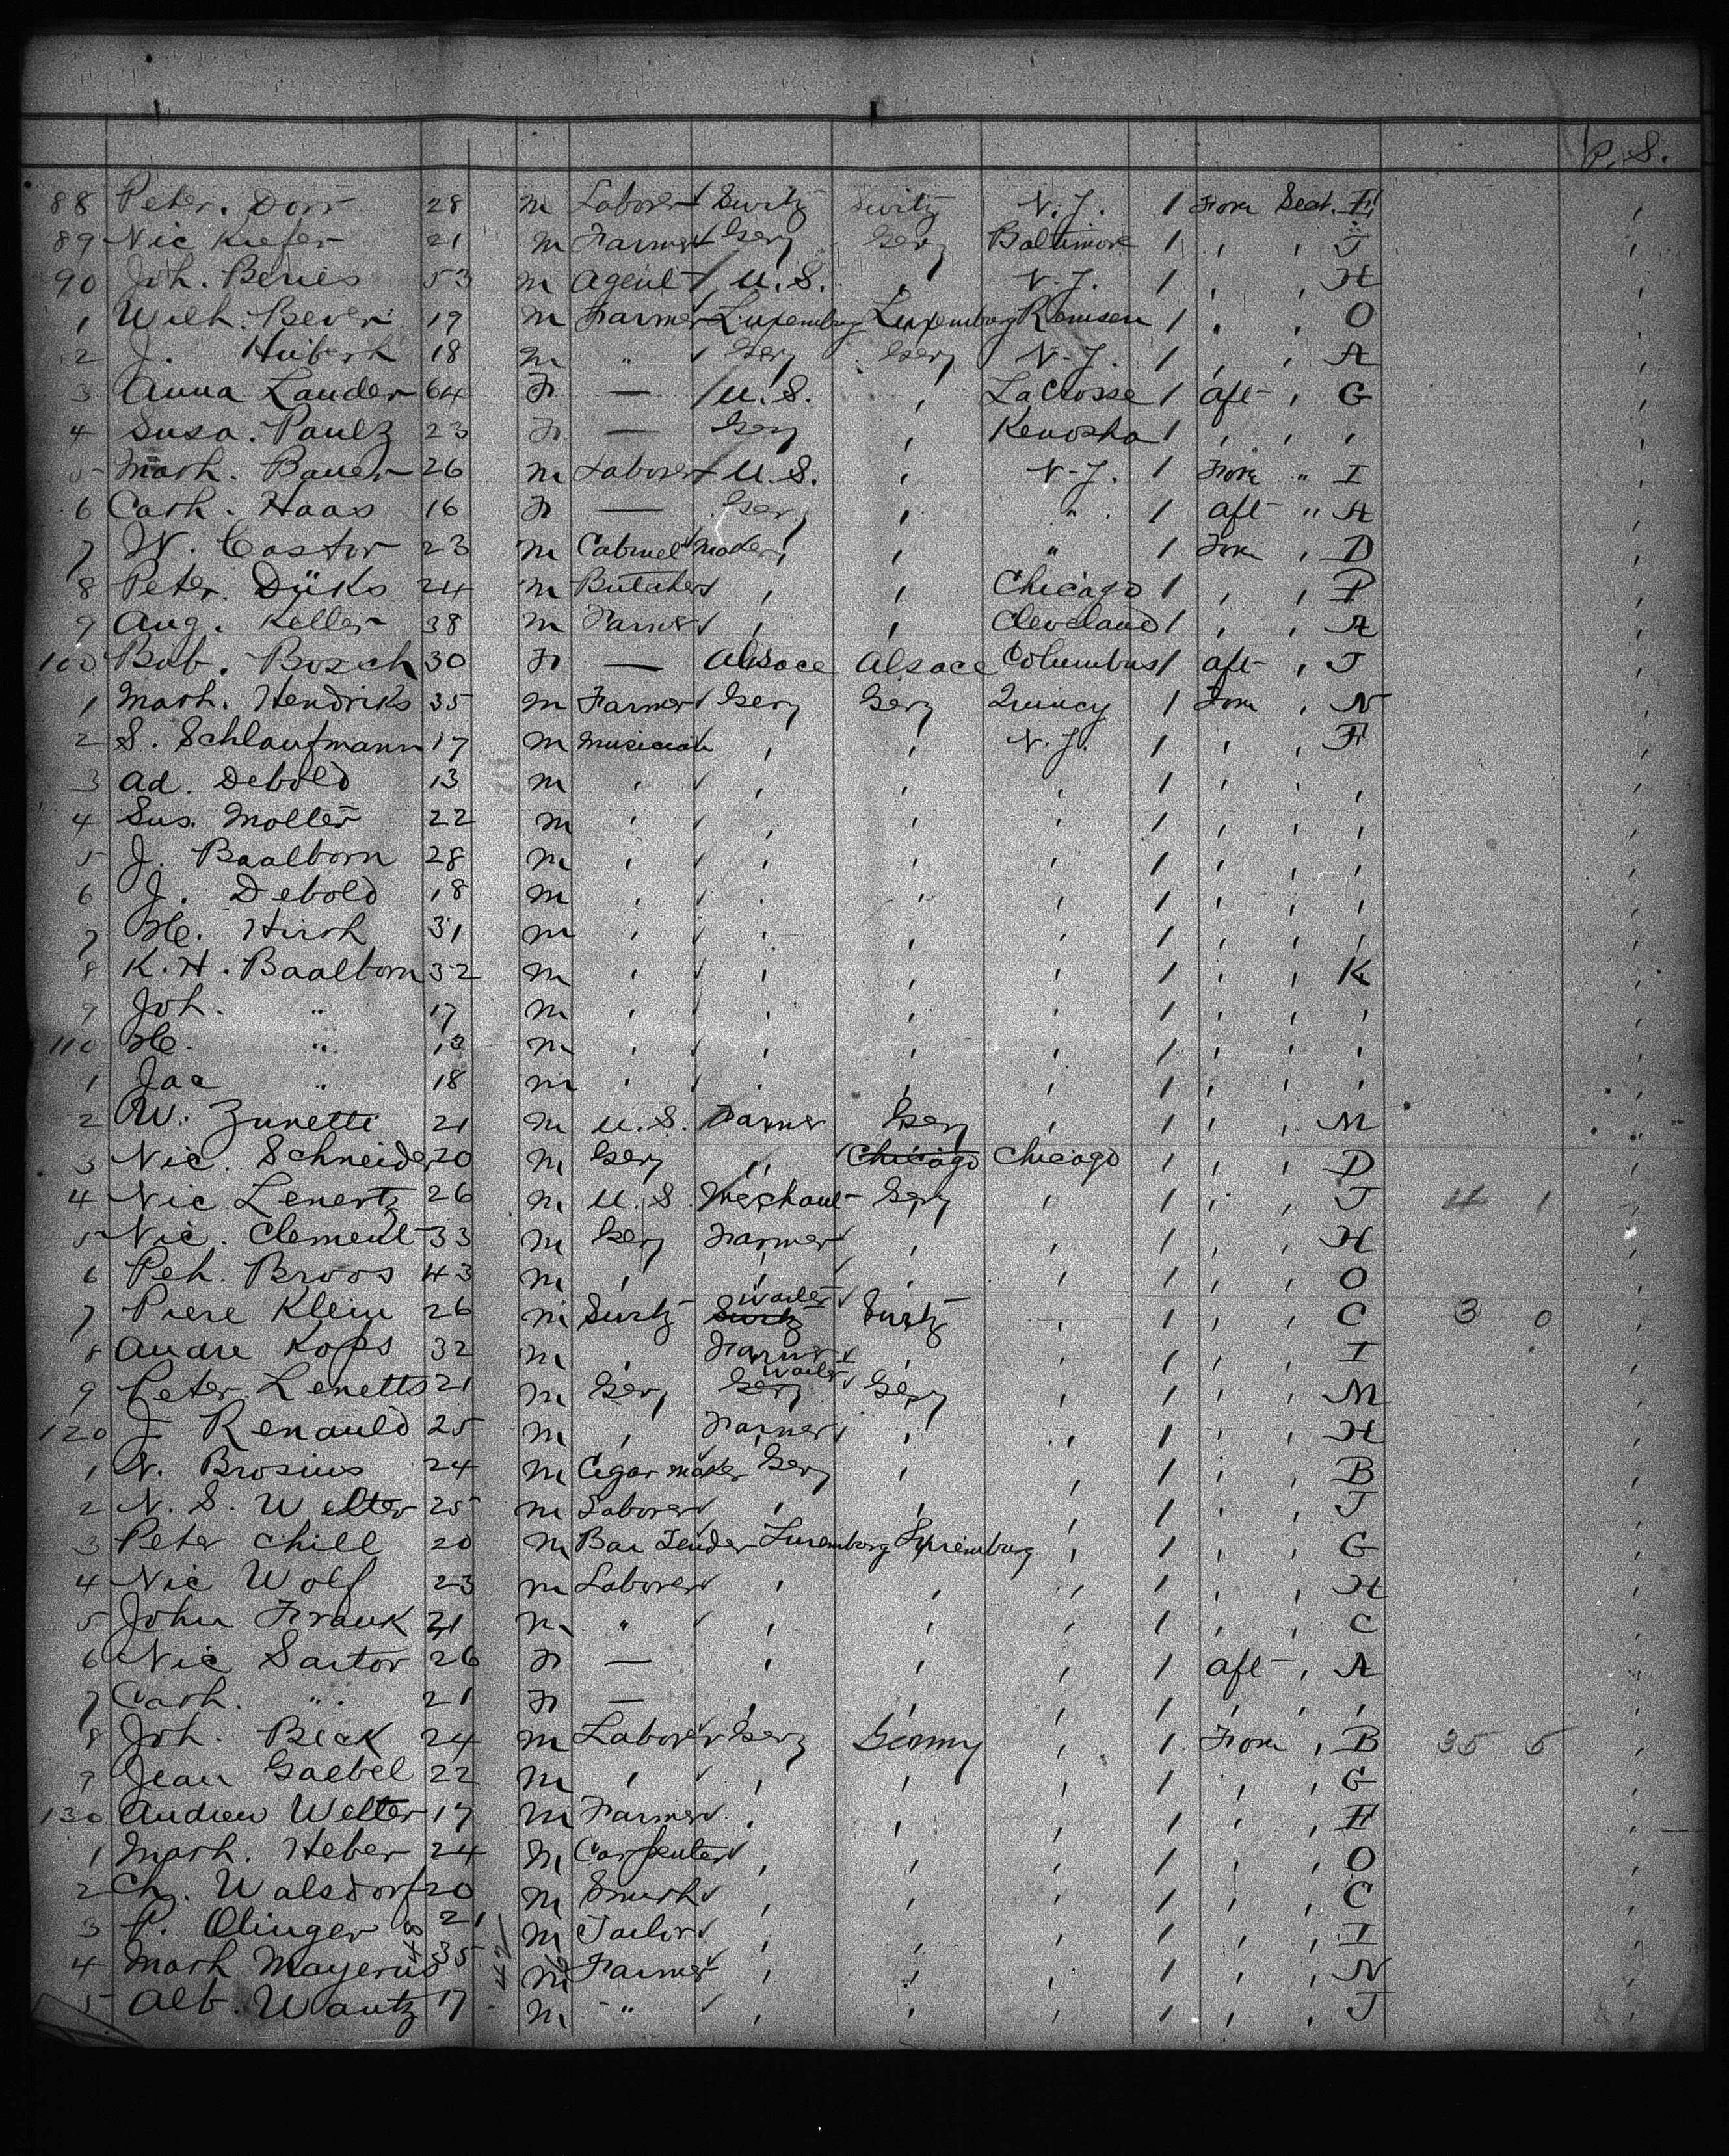 P. S.
88 Peter. Dorr 28 m Laborer Switz Switz N. J. 1 Fore Sect. E
89 Nic Kiefer 21 m Farmer Gery Gery Baltimore 1 , , J
90 Joh. Beries 53 m Agent U. S. , N. J. 1 , , H
1 Wilh. Bever 19 m Farmer Luxemburg Luxemburg Remsen 1 , , O
2 J. Hubert 18 m " Gery Gery N. J. 1 , , A
3 Anna Lauder 64 F — U. S. , LaCrosse 1 aft , G
4 Susa. Paulz 23 F — Gery , Kenosha 1 , , ,
5 Math. Bauer 26 m Laborer U. S. , N. J. 1 Fore " I
6 Cath. Haas 16 F — Gery , " 1 aft " A
7 N. Castor 23 m Cabinet maker , , " 1 Fore , D
8 Peter. Düks 24 m Butcher , , Chicago 1 , , P
9 Aug. Keller 38 m Farmer , , Cleveland 1 , , A
100 Bab. Bosch 30 F — Alsace Alsace Columbus 1 aft , J
1 Math. Hendriks 35 m Farmer Gery Gery Quincy 1 Fore , N
2 S. Schlaufmann 17 m musician , , N. J. 1 , , F
3 Ad. Debold 13 m , , , , 1 , , ,
4 Sus. Moller 22 m , , , , 1 , , ,
5 J. Baalborn 28 m , , , , 1 , , ,
6 J. Debold 18 m , , , , 1 , , ,
7 He. Hirth 31 m , , , , 1 , , ,
8 K. H. Baalborn 32 m , , , , 1 , , K
9 Joh. " 17 m , , , , 1 , , ,
110 He. " 13 m , , , , 1 , , ,
1 Jac " 18 m , , , , 1 , , ,
2 W. Zunetti 21 m U. S. Farmer Gery , 1 , , M
3 Nic. Schneider 20 m Gery ,, Chicago Chicago 1 , , D
4 Nic Lenertz 26 m U. S. Merchant Gery , 1 , , J 4 1
5 Nic. Clement 33 m Gery Farmer , , 1 , , H
6 Peh. Broos 43 m , , , , 1 , , O
7 Piere Klein 26 m Switz Switz Waiter Switz , 1 , , C 3 0
8 Andre Kops 32 m , Farmer , , 1 , , I
9 Peter Lenetts 21 m Gery Gery Waiter Gery , 1 , , M
120 J Renauld 25 m , Farmer , , 1 , , H
1 N. Brosius 24 m Cigar maker Gery , , 1 , , B
2 N. S. Welter 25 m Laborer , , , 1 , , J
3 Peter Chill 20 m Bar Tender Luxemburg Luxemburg , 1 , , G
4 Nic Wolf 23 m Laborer , , , 1 , , H
5 John Frank 21 m " , , , 1 , , C
6 Nic Sartor 26 F — , , , 1 aft , A
7 Cath. " 21 F — , , , 1 , , ,
8 Joh. Beck 24 m Laborer Gery Germny , 1 Fore , B 35 5
9 Jean Gaebel 22 m , , , , 1 , , G
130 Andrew Welter 17 m Farmer , , , 1 , , H
1 Math. Heber 24 m Carpenter , , , 1 , , O
2 Ch. Walsdorf 20 m Smith , , , 1 , , C
3 P. Olinger 21 m Tailor , , , 1 , , I
4 Math Mayerus 35 m Farmer , , , 1 , , N
48 42
5 Alb. Wautz 17 m " , , , 1 , , J